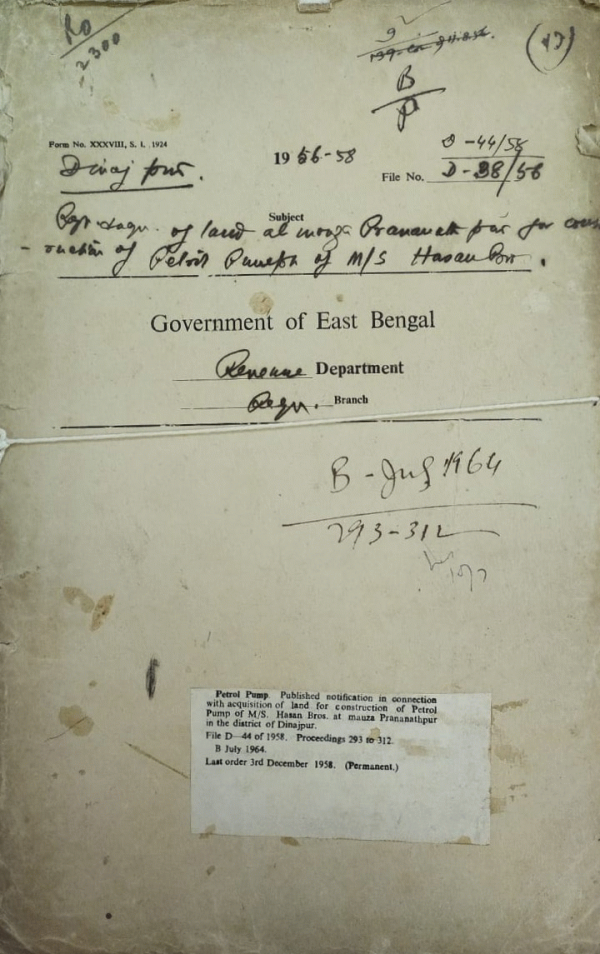 RO
2300
(17)
B
P
Form No. XXXVIII, S. I. 1924
Dinajpur.
1956-58
D-44/58
File No. D-38/56
Subject
of land at mouza Prananathpur for cons
-truction of Petrol Pump of M/S Hasan Bro.
Government of East Bengal
Revenue Department
Reqn. Branch
B - July 1964
293-312
Petrol Pump. Published notification in connection
with acquisition of land for construction of Petrol
Pump of M/S. Hasan Bros. at mauza Prananathpur
in the district of Dinajpur.
File D—44 of 1958. Proceedings 293 to 312.
B July 1964.
Last order 3rd December 1958. (Permanent.)